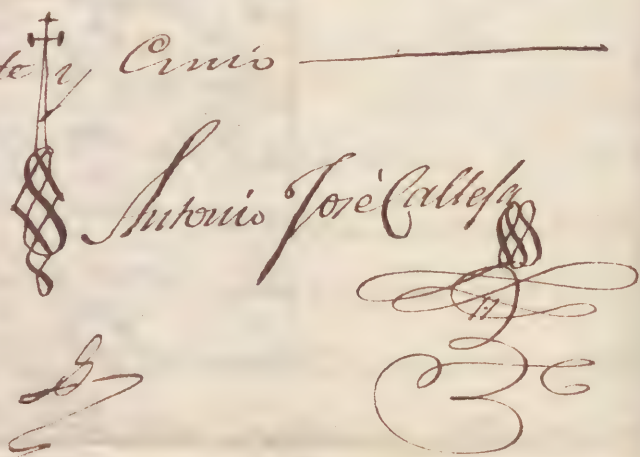 te y Cinco
Antonio José Calleja